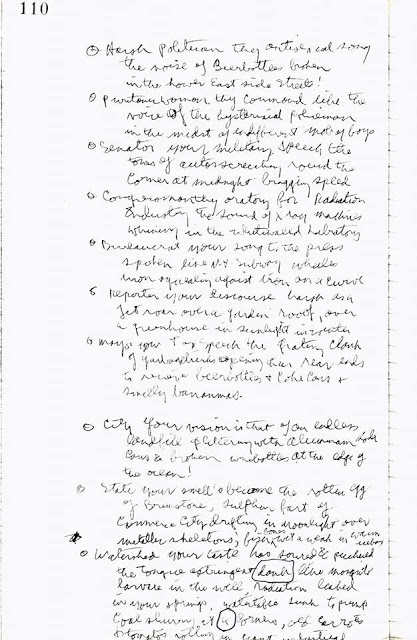 110
O Harsh Politician thy antisexual song
the noise of Beerbottles broken
in the Lower East Side Streets!
O thy Command like the
voice of the hysterical policeman
in the midst of indifferent mob of boys
O Senator your military speech the
tones of autos screeching round the
Corner at midnight braking speed
O Congressman thy oratory for Radiation
Industry the sound of X ray machines
whining in the whitewalled Labratory
O Bureaucrat your song to the press
spoken like N.Y. subway wheels
iron squealing against Iron on a Curve
O Reporter your discourse harsh as a
Jet roar over a garden roof, over
a greenhouse in sunlight
O Mayor your speech the grating Clank
of garbagetrucks opening their rear ends
to receive beerbottles & Coke Cans &
smelly bananas.
O City your vision is that of an endless
landfill glittering with Aluminum
Cans & broken winebottles at the edge of
the ocean!
O State your smell's become the rotten egg
of Brimstone, Sulphur fart of
Commerce City drifting in moonlight over
metallic skeletons,
O Watershed your taste has soured & puckered
the tongue astringent like mosquito
larvae in the well radiation leaked
in your springs, sunk to pump
Coal slurry,